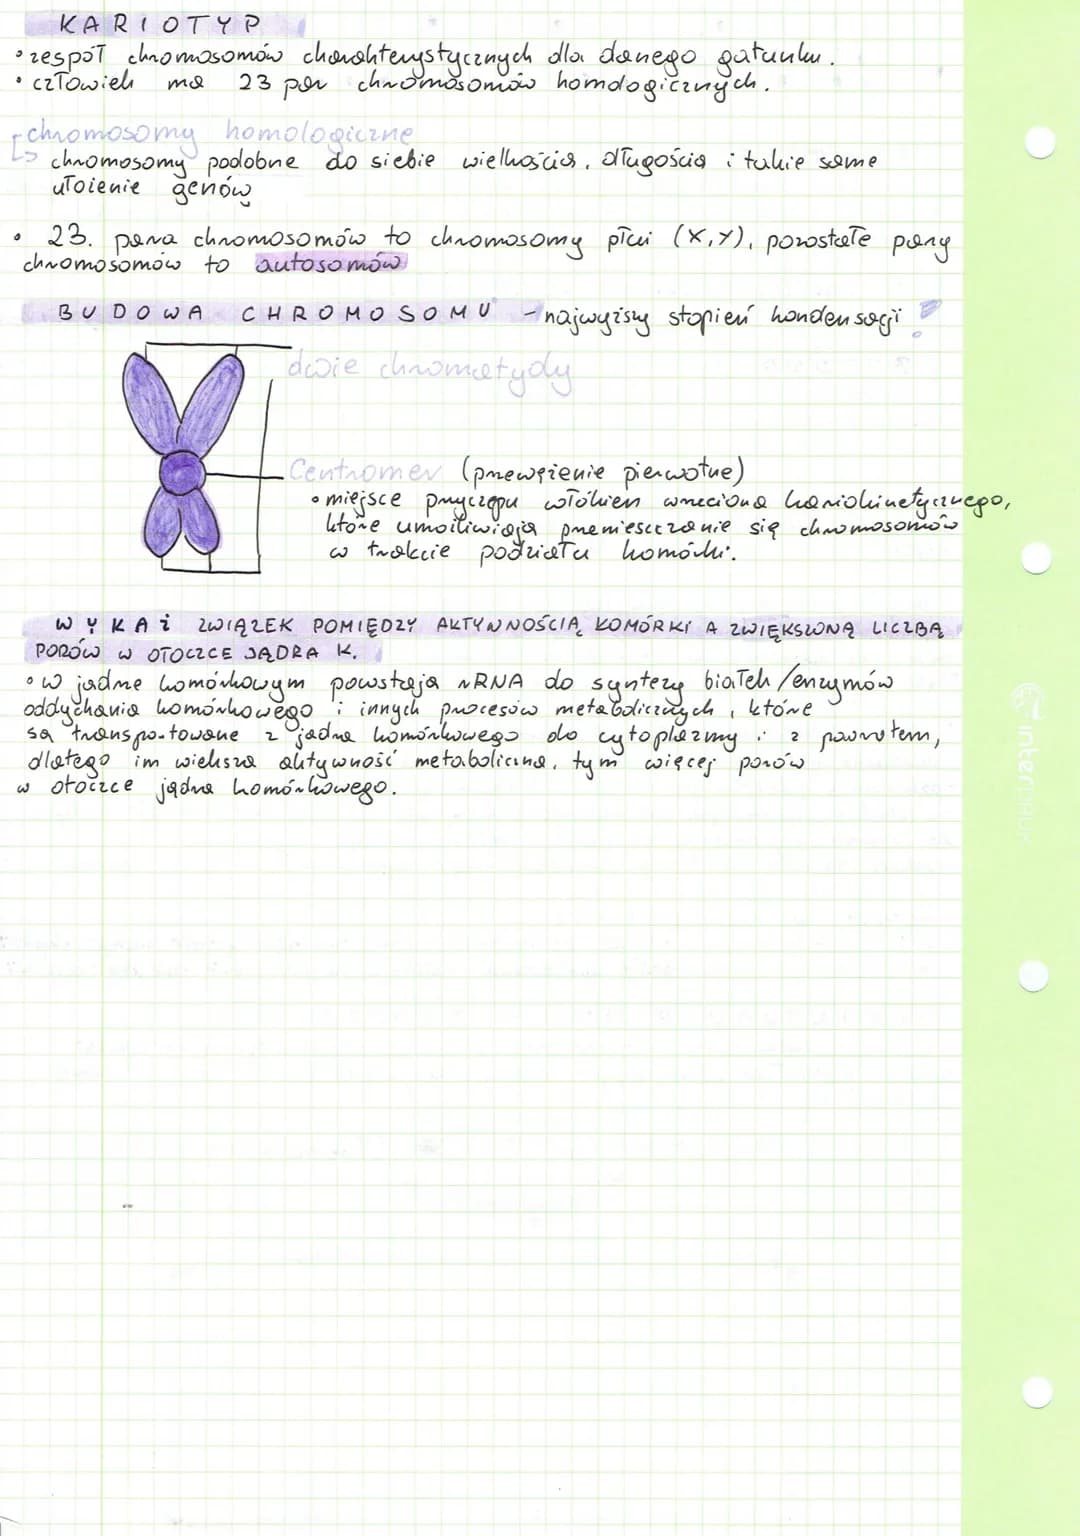 KARIOTYP
• zespół chromosomów charakterystycznych dla danego gatunku.
• człowiek ma 23 par chromosomów homologicznych.
chromosomy homologiczne
↳ chromosomy podobne do siebie wielkością, długością i takie same
ułożenie genów
• 23. para chromosomów to chromosomy płci (X,Y), pozostałe pary
chromosomów to autosomów
BUDOWA CHROMOSOMU - najwyższy stopień kondensacji
dwie chromatydy
Centromer (przewężenie pierwotne)
• miejsce przyczepu włókien wrzeciona kariokinetycznego,
które umożliwiają przemieszczanie się chromosomów
w trakcie podziału komórki.
WYKAŻ ZWIĄZEK POMIĘDZY AKTYWNOŚCIĄ KOMÓRKI A ZWIĘKSZONĄ LICZBĄ
PORÓW W OTOCZCE JĄDRA K.
• w jądrze komórkowym powstają rRNA do syntezy białek/enzymów
oddychania komórkowego i innych procesów metabolicznych, które
są transportowane z jądra komórkowego do cytoplazmy i z powrotem,
dlatego im większa aktywność metaboliczna, tym więcej porów
w otoczce jądra komórkowego.
interdruk